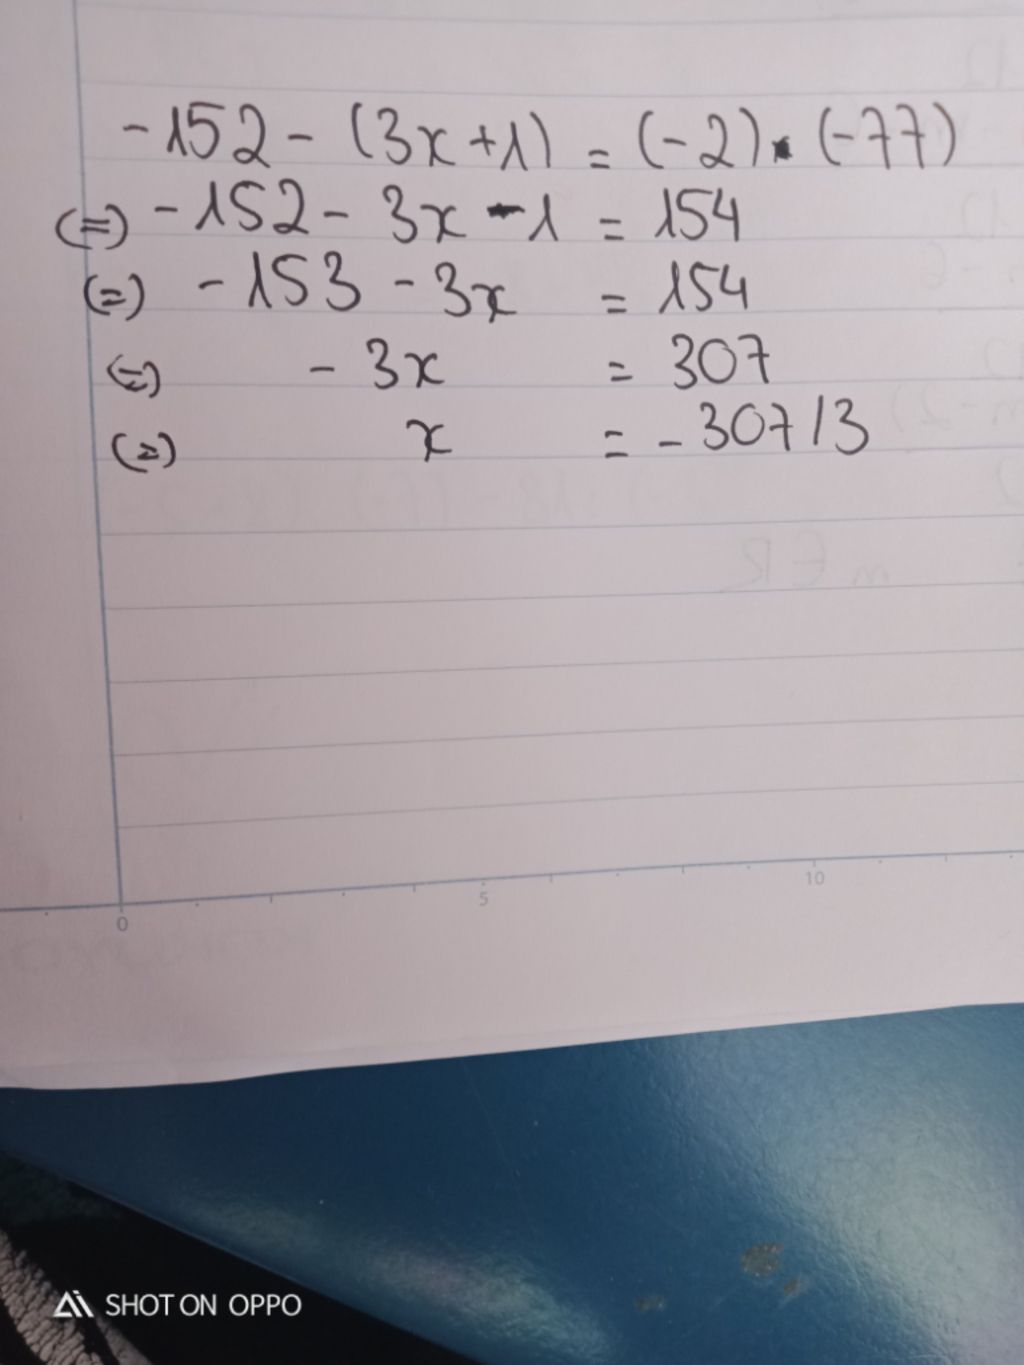 -152 - (3x+1) = (-2) · (-77)
(=) -152 - 3x - 1 = 154
(=) -153 - 3x = 154
(=) -3x = 307
(=) x = -307/3
m ∈ R
0 5 10
SHOT ON OPPO